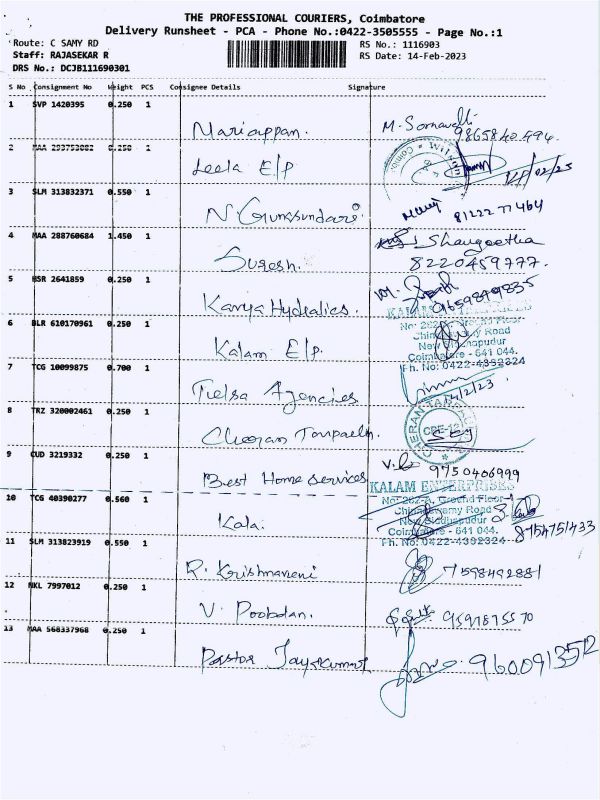 THE PROFESSIONAL COURIERS, Coimbatore
Delivery Runsheet - PCA - Phone No.:0422-3505555 - Page No.:1
Route: C SAMY RD
RS No.: 1116903
Staff: RAJASEKAR R
RS Date: 14-Feb-2023
DRS No.: DCJB111690301
S No Consignment No Weight PCS Consignee Details Signature
1 SVP 1420395 0.250 1
Mariappan.
2 MAA 293753082 0.250 1
Leela E/P
3 SLM 313832371 0.550 1
N. Gunasundari
81222 77464
4 MAA 288760684 1.450 1
Suresh. Shangeetha
8220459777.
5 HSR 2641859 0.250 1
Kaviya Hydralics.
6 BLR 610170961 0.250 1
Kalam E/P.
KALAM ENTERPRISES
Road
Coimbatore - 641 044.
Ph. No: 0422-4392324
7 TCG 10099875 0.700 1
Agencies
14/2/23
8 TRZ 320002461 0.250 1
Cheeran
9 CUD 3219332 0.250 1
Best Home services
9750406999
KALAM ENTERPRISES
No: 262-A, Ground Floor
Chinnaswamy Road
New Siddhapudur
Coimbatore - 641 044.
Ph. No: 0422-4392324
10 TCG 40390277 0.560 1
Kala.
8754751433
11 SLM 313823919 0.550 1
R. Krishnaveni
7598492881
12 NKL 7997012 0.250 1
V. Poobalan.
13 MAA 568337968 0.250 1
Pastor Jayakumar